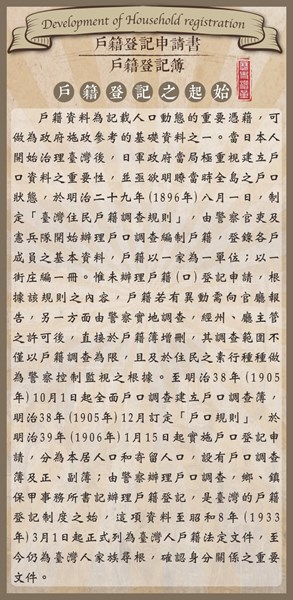 Development of Household registration
戶籍登記申請書
戶籍登記簿
戶籍登記之起始
戶籍資料為記載人口動態的重要憑藉，可
做為政府施政參考的基礎資料之一。當日本人
開始治理臺灣後，日軍政府當局極重視建立戶
口資料之重要性，並亟欲明瞭當時全島之戶口
狀態，於明治二十九年(1896年)八月一日，制
定「臺灣住民戶籍調查規則」，由警察官吏及
憲兵隊開始辦理戶口調查編制戶籍，登錄各戶
成員之基本資料，戶籍以一家為一單位；以一
街庄編一冊。惟未辦理戶籍(口)登記申請，根
據該規則之內容，戶籍若有異動需向官廳報
告，另一方面由警察實地調查，經州、廳主管
之許可後，直接於戶籍簿增刪，其調查範圍不
僅以戶籍調查為限，且及於住民之素行種種做
為警察控制監視之根據。至明治38年(1905
年)10月1日起全面戶口調查建立戶口調查簿，
明治38年(1905年)12月訂定「戶口規則」，於
明治39年(1906年)1月15日起實施戶口登記申
請，分為本居人口和寄留人口，設有戶口調查
簿及正、副簿；由警察辦理戶口調查，鄉、鎮
保甲事務所書記辦理戶籍登記，是臺灣的戶籍
登記制度之始，這項資料至昭和8年(1933
年)3月1日起正式列為臺灣人戶籍法定文件，至
今仍為臺灣人家族尋根，確認身分關係之重要
文件。